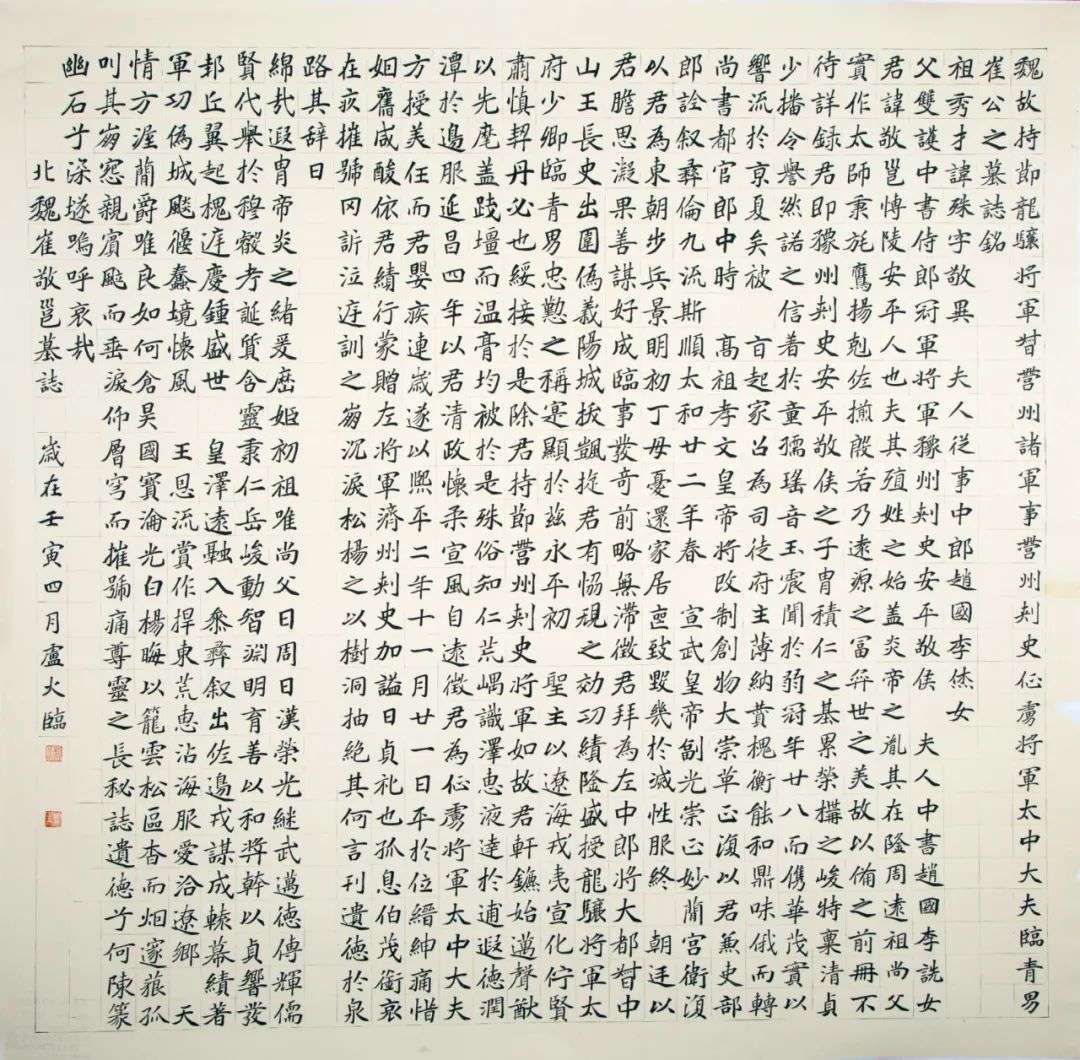 魏故持節龍驤將軍督營州諸軍事營州刾史征虜將軍太中大夫臨青男
崔公之墓誌銘
祖秀才諱殊字敬異 夫人従事中郎趙國李烋女
父雙護中書侍郎冠軍將軍豫州刾史安平敬侯 夫人中書趙國李詵女
君諱敬邕博陵安平人也夫其殖姓之始盖炎帝之胤其在隆周遠祖尚父
實作太師秉旄鷹揚剋佐揃殷若乃遠源之富弈世之美故以俻之前冊不
待詳録君即豫州刾史安平敬侯之子胄積仁之基累榮構之峻特稟清貞
少播令譽然諾之信著於童孺瑤音玉震聞於弱冠年廿八而儁華茂實以
響流於京夏矣被 旨起家召為司徒府主薄納賛槐衡能和鼎味俄而轉
尚書都官郎中時 髙祖孝文皇帝將改制創物大崇草正復以君兼吏部
郎詮叙彛倫九流斯順太和廿二年春 宣武皇帝副光崇正妙蕳宮衛復
以君為東朝步兵景明初丁母憂還家居䘮致毀幾於滅性服終 朝廷以
君膽思凝果善謀好成臨事發奇前略無滯徴君拜為左中郎將大都督中
山王長史出圍偽義陽城拔凱旋君有恊規之効功績隆盛授龍驤將軍太
府少卿臨青男忠懃之稱寔顯於兹永平初 聖主以遼海戎夷宣化佇賢
肅慎契丹必也綏接於是除君持節營州刾史將軍如故君軒鑣始邁聲猷
以先麾盖踐壇而温膏均被於是殊俗知仁荒嵎識澤惠液達於逋遐德潤
潭於邊服延昌四年以君清政懷柔宣風自遠徴君為征虜將軍太中大夫
方授美任而君嬰疾連歳遂以熈平二年十一月廿一日卒於位縉紳痛惜
姻舊咸酸依君績行蒙贈左將軍濟州刾史加謚曰貞礼也孤息伯茂銜哀
在疚摧號罔訴泣庭訓之崩沉淚松楊之以樹洞抽絶其何言刊遺德於泉
路其辞曰
綿㢤遐胄帝炎之緒爰歴姫初祖唯尚父曰周曰漢榮光継武邁德傳輝儒
賢代舉於穆叡考誕質含靈秉仁岳峻動智淵明育善以和奬幹以貞響發
邦丘翼起槐庭慶鍾盛世 皇澤遠融入叅彛叙出佐邊戎謀成轅幕績著
軍功偽城飈偃蠢境懷風 王恩流賞作捍東荒惠沾海服愛洽遼鄉 天
情方渥蕳爵唯良如何倉昊國寳淪光白楊晦以籠雲松區杳而烟邃菰孤
叫其崩窓親賓飈而垂淚仰層穹而摧號痛尊靈之長秘誌遺德兮何陳篆
幽石兮深㙇嗚呼哀㢤
北魏崔敬邕墓誌 歳在壬寅四月盧火臨